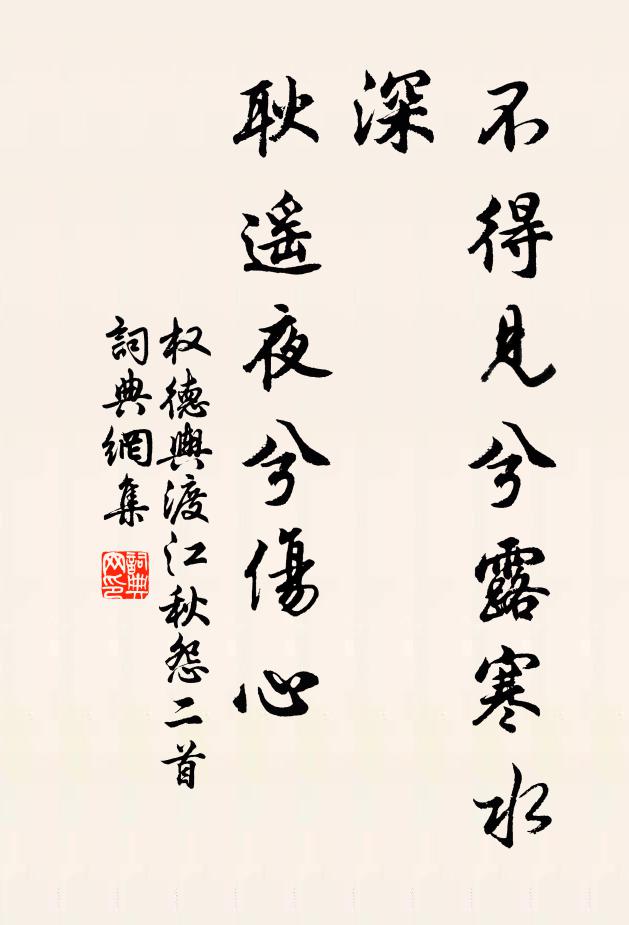 不得見兮露寒水
深
耿遙夜兮傷心
权德輿渡江秋怨二首
詞典網集
詞典
网印